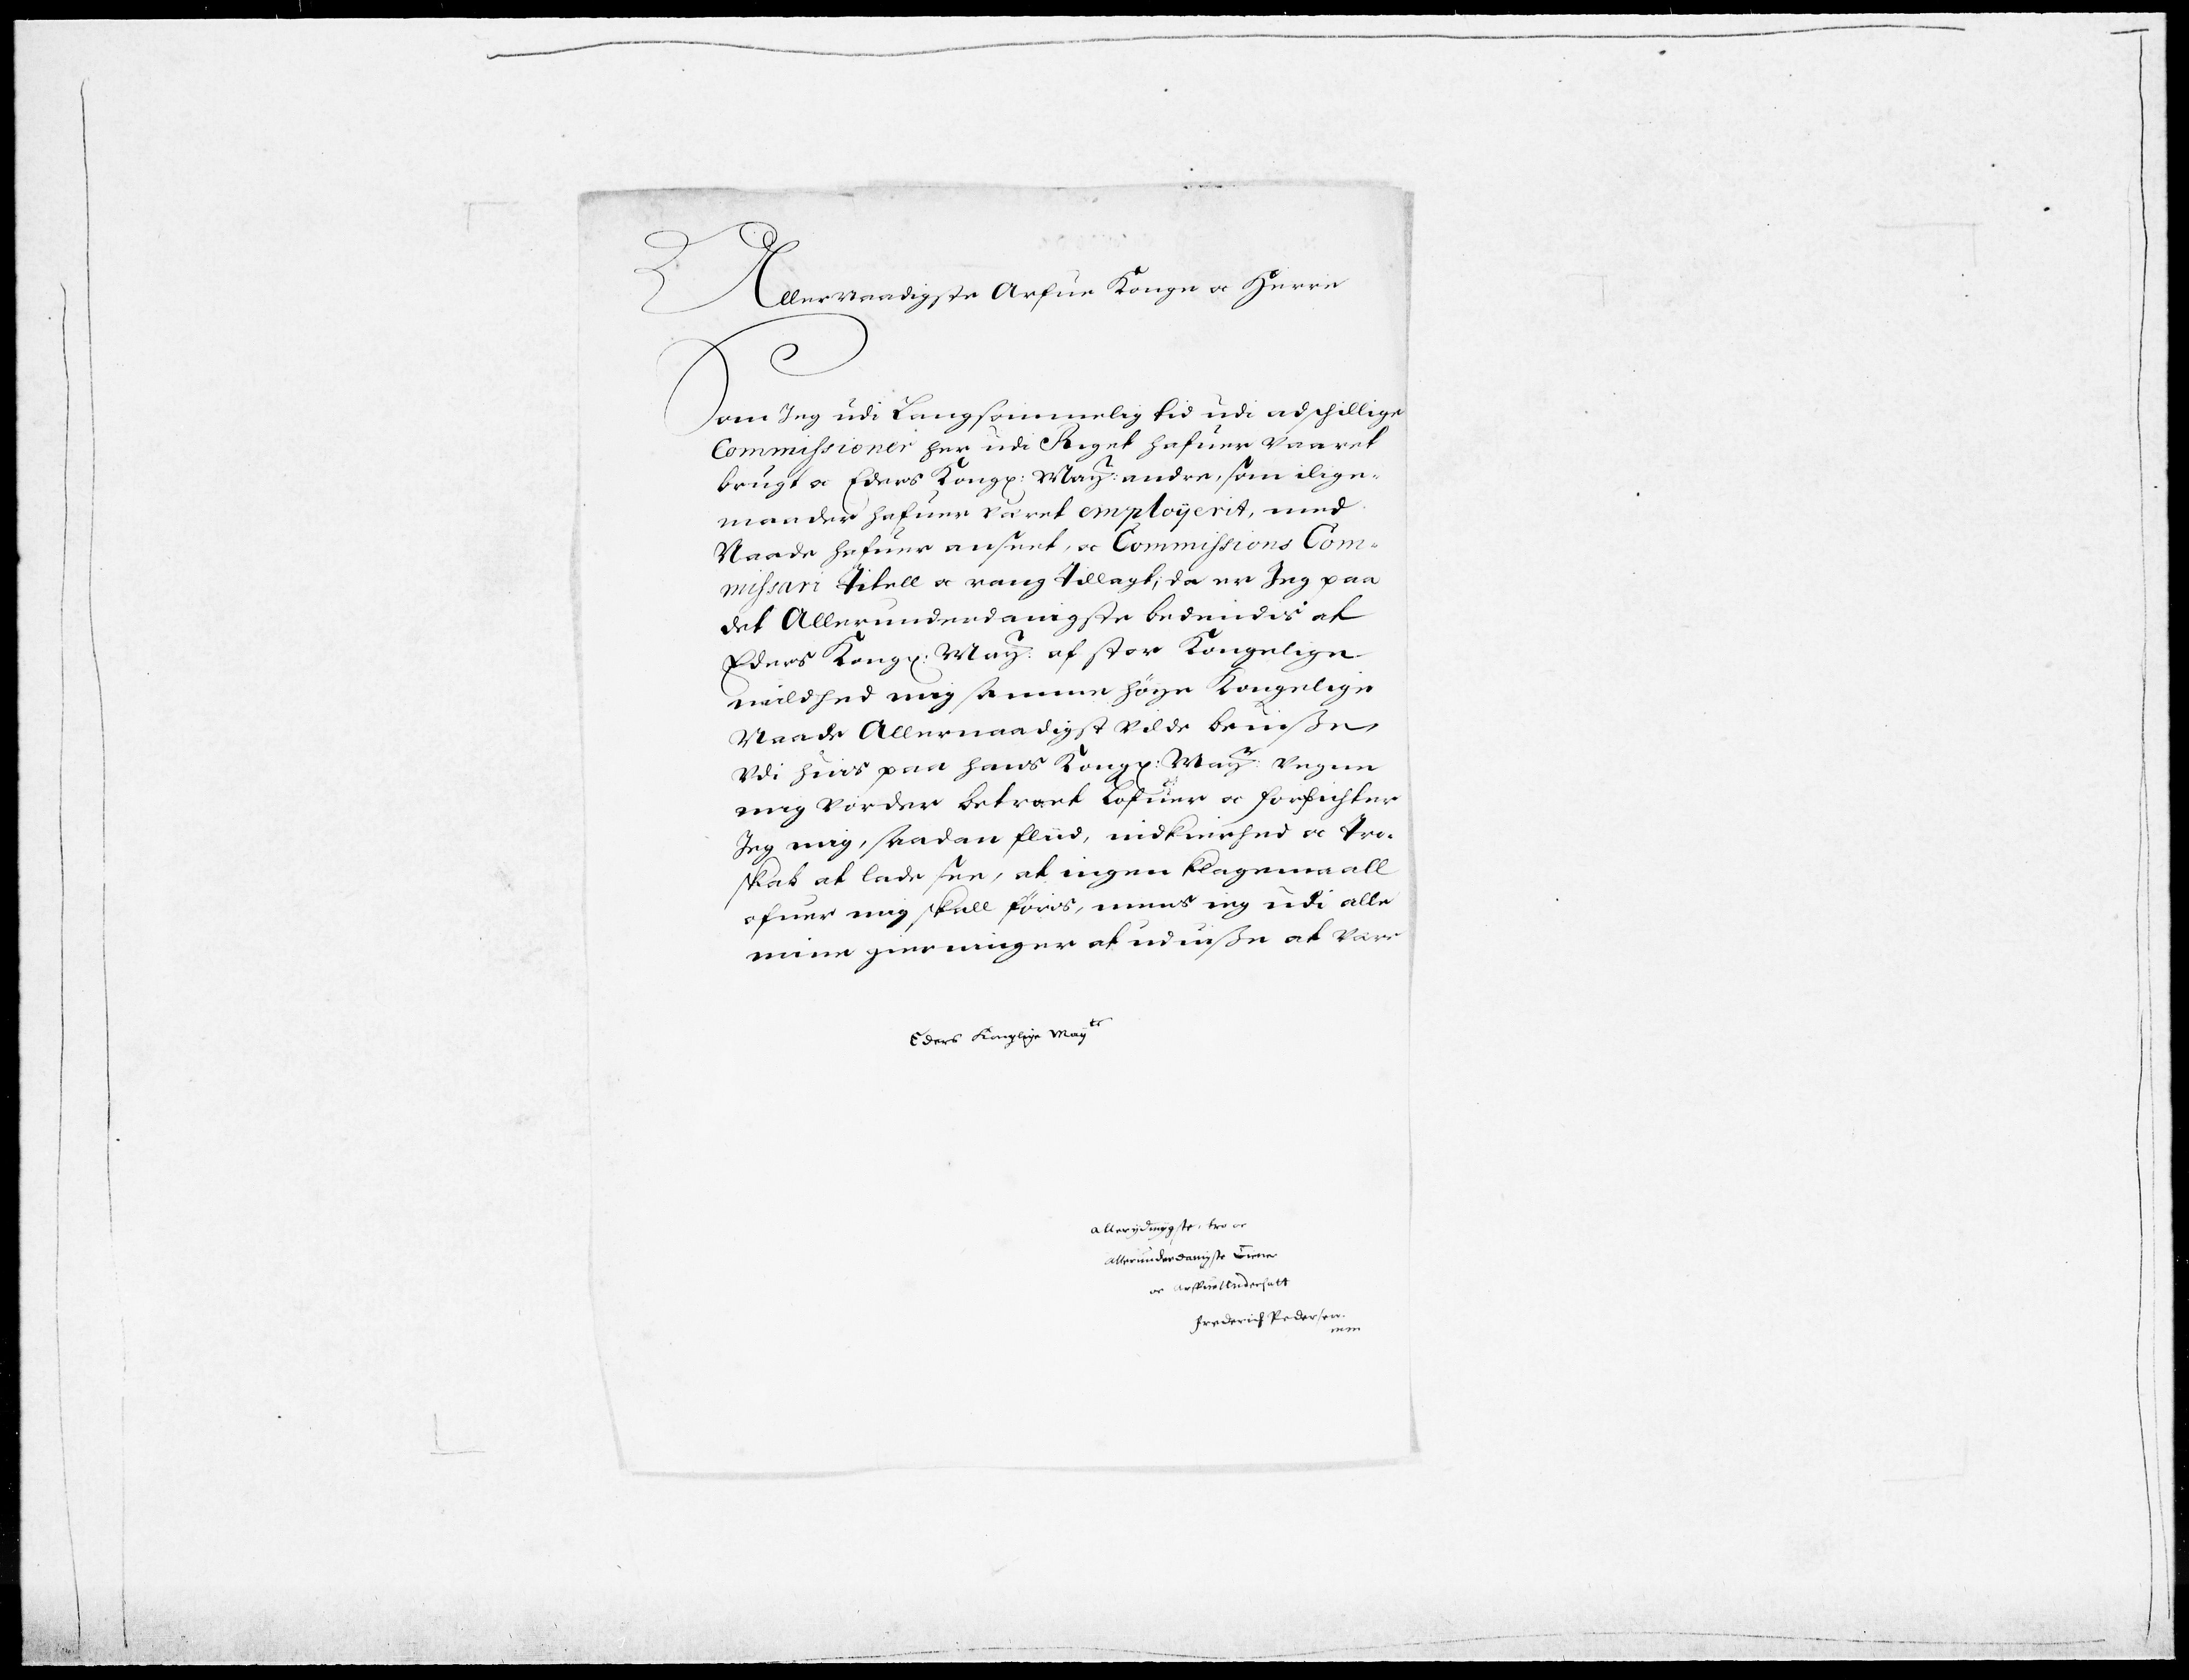 Allernaadigste Arfue Konge oc Herre
Som Jeg udi Langsommelig tid udi adschillige
Commissioner her udi Riget hafuer vaaret
brugt oc Eders Kong: May: andre, som ilige-
maader hafuer været employerit, med
Naade hafuer anseet, oc Commissions Com-
missari Titell oc rang tillagt; da er Jeg paa
det Allerunderdanigste bedendis at
Eders Kong: May: af stor Kongelige
mildhed mig samme høye Kongelige
Naade Allernaadigst vilde beuiße,
Vdi huis paa hans Kong: May: vegne
mig vorder betroet Lofuer oc forplichter
Jeg mig, saadan fliid, nidkierhed oc Tro-
skab at lade see, at ingen klagemaall
ofuer mig skall føris, mens ieg udi alle
mine gierninger at uduiße at være
Eders Konglige Mayts
allerydmygste, tro oc
allerunderdanigste Tiener
oc Arffue Undersatt
Frederich Pedersen.
mm